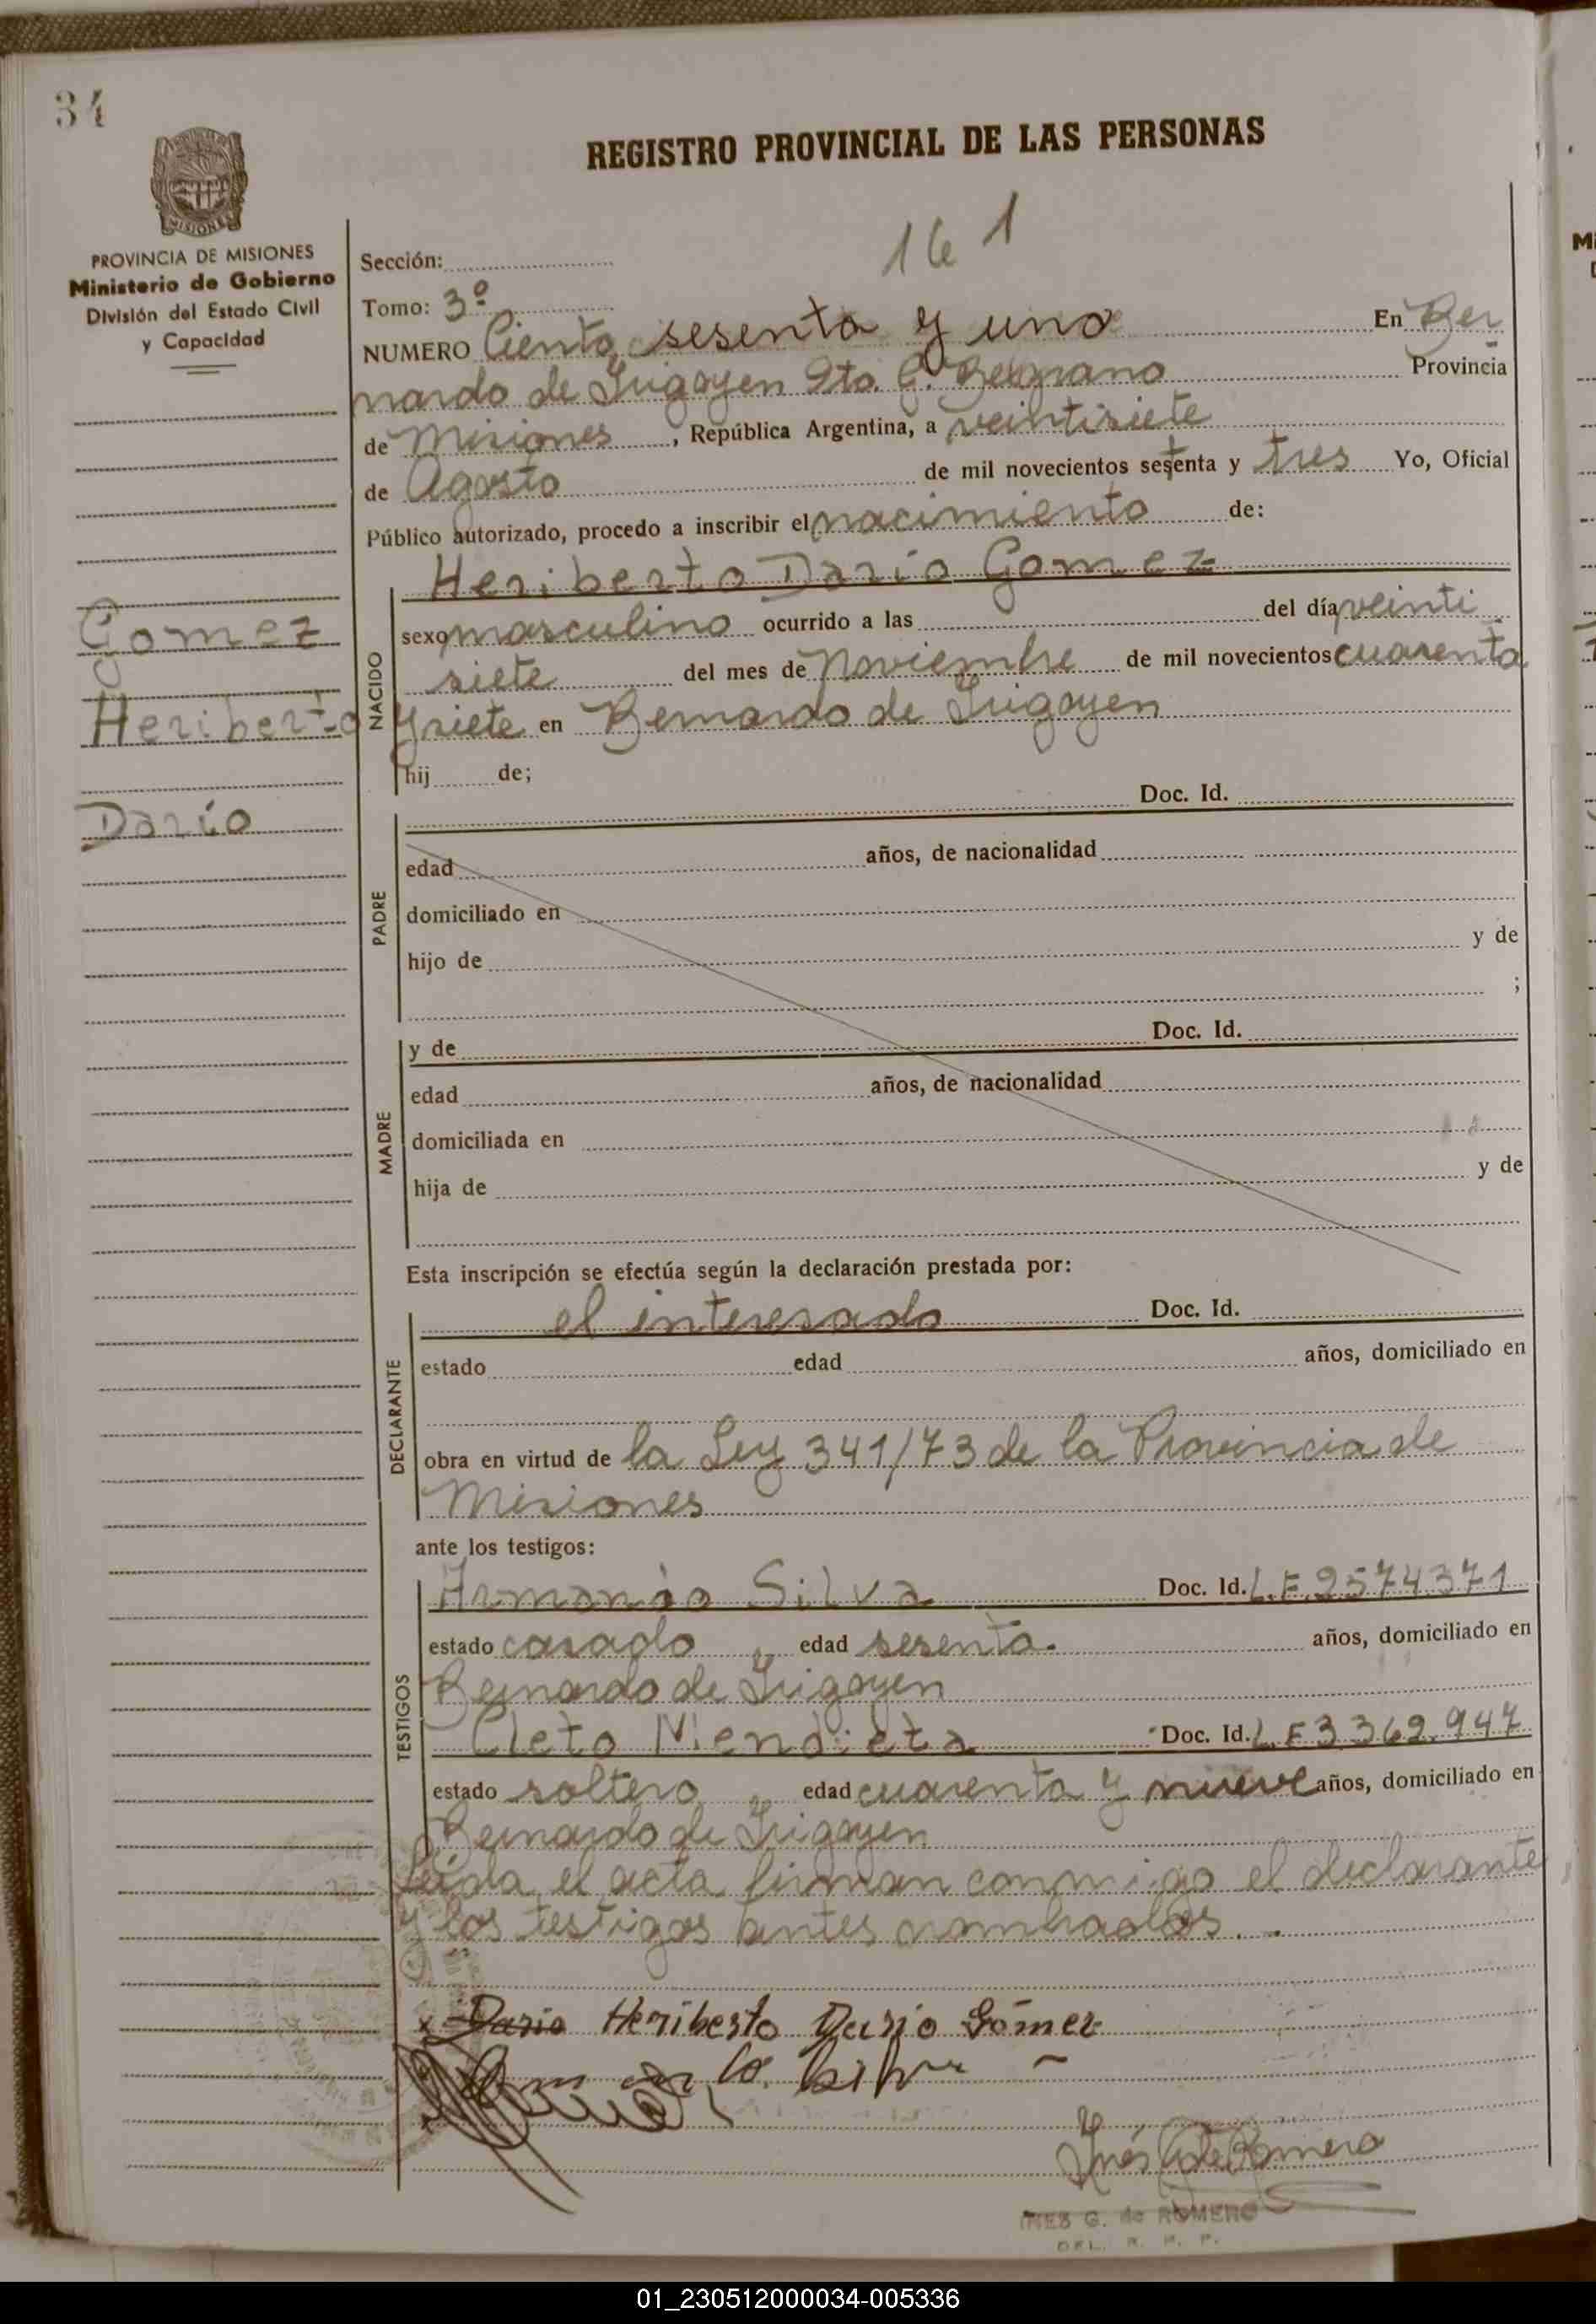 34
REGISTRO PROVINCIAL DE LAS PERSONAS
MISIONES
PROVINCIA DE MISIONES
Ministerio de Gobierno
División del Estado Civil
y Capacidad
161
Sección:
Tomo: 3º
NUMERO Ciento sesenta y uno En Ber
nardo de Irigoyen Dto. G. Belgrano Provincia
de Misiones, República Argentina, a veintisiete
de Agosto de mil novecientos setenta y tres Yo, Oficial
Público autorizado, procedo a inscribir el nacimiento de:
Gomez
Heriberto
Darío
NACIDO
Heriberto Darío Gomez
sexo masculino ocurrido a las del día veinti
siete del mes de Noviembre de mil novecientos cuarenta
y siete en Bernardo de Irigoyen
hij de;
PADRE
Doc. Id.
edad años, de nacionalidad
domiciliado en
hijo de y de
;
MADRE
y de Doc. Id.
edad años, de nacionalidad
domiciliada en
hija de y de
Esta inscripción se efectúa según la declaración prestada por:
DECLARANTE
el interesado Doc. Id.
estado edad años, domiciliado en
obra en virtud de la Ley 341/73 de la Provincia de
Misiones
ante los testigos:
TESTIGOS
Armando Silva Doc. Id. L.E. 2574371
estado casado, edad sesenta. años, domiciliado en
Bernardo de Irigoyen
Cleto Mendieta Doc. Id. L.E 3362.947
estado soltero, edad cuarenta y nueve años, domiciliado en
Bernardo de Irigoyen
Leída el acta firman conmigo el declarante
y los testigos antes nombrados.
x Dario Heriberto Dario Gómez
Inés G de Romero
INES G. de ROMERO
DEL. R. P. P.
01_230512000034-005336